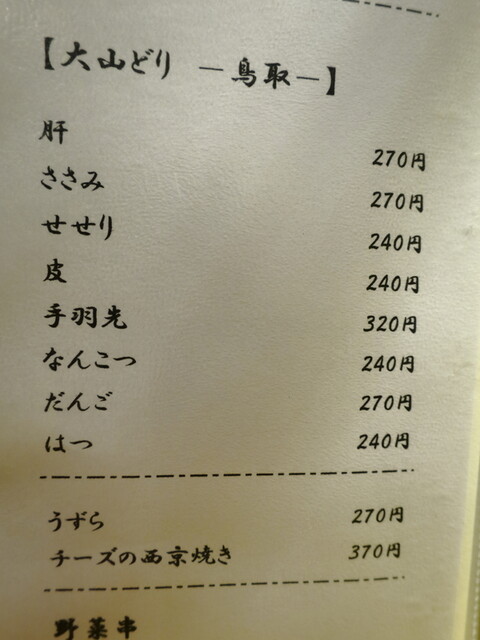 【大山どり ―鳥取―】
肝 270円
ささみ 270円
せせり 240円
皮 240円
手羽先 320円
なんこつ 240円
だんご 270円
はつ 240円
うずら 270円
チーズの西京焼き 370円
野菜串